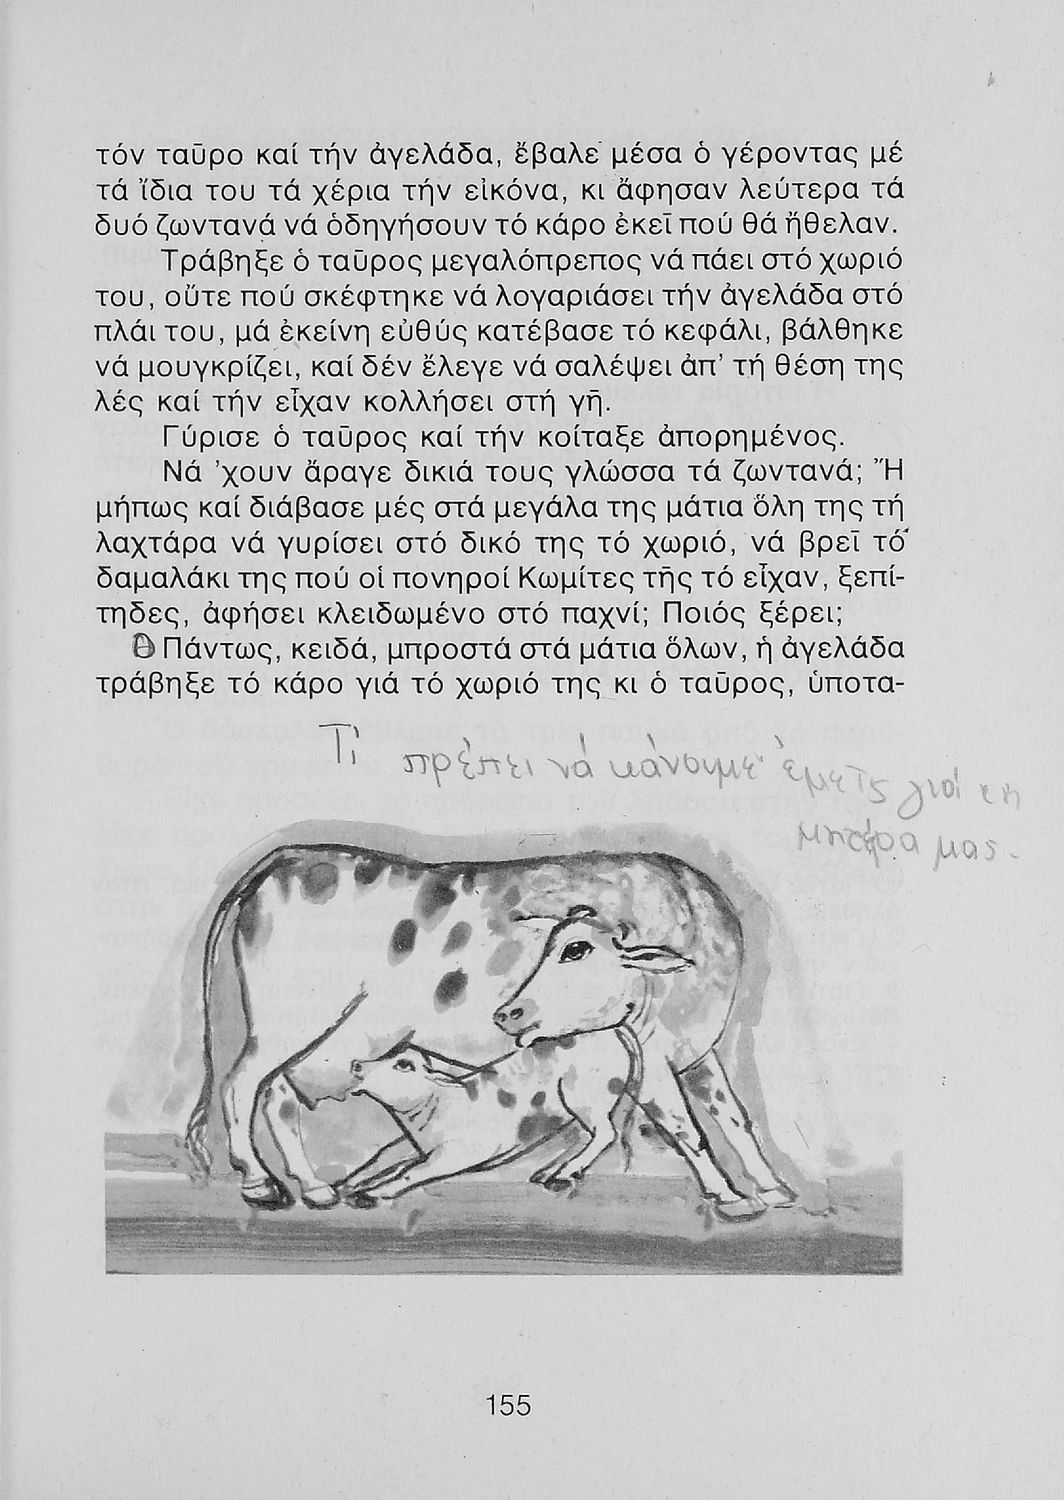 τόν ταῦρο καί τήν ἀγελάδα, ἔβαλε μέσα ὁ γέροντας μέ
τά ἴδια του τά χέρια τήν εἰκόνα, κι ἄφησαν λεύτερα τά
δυό ζωντανά νά ὁδηγήσουν τό κάρο ἐκεῖ πού θά ἤθελαν.
Τράβηξε ὁ ταῦρος μεγαλόπρεπος νά πάει στό χωριό
του, οὔτε πού σκέφτηκε νά λογαριάσει τήν ἀγελάδα στό
πλάι του, μά ἐκείνη εὐθύς κατέβασε τό κεφάλι, βάλθηκε
νά μουγκρίζει, καί δέν ἔλεγε νά σαλέψει ἀπ’ τή θέση της
λές καί τήν εἶχαν κολλήσει στή γῆ.
Γύρισε ὁ ταῦρος καί τήν κοίταξε ἀπορημένος.
Νά ’χουν ἄραγε δικιά τους γλώσσα τά ζωντανά; Ἤ
μήπως καί διάβασε μές στά μεγάλα της μάτια ὅλη της τή
λαχτάρα νά γυρίσει στό δικό της τό χωριό, νά βρεῖ τό
δαμαλάκι της πού οἱ πονηροί Κωμίτες τῆς τό εἶχαν, ξεπί-
τηδες, ἀφήσει κλειδωμένο στό παχνί; Ποιός ξέρει;
Πάντως, κειδά, μπροστά στά μάτια ὅλων, ἡ ἀγελάδα
τράβηξε τό κάρο γιά τό χωριό της κι ὁ ταῦρος, ὑποτα-
Τί πρέπει νά κάνουμε ἐμεῖς γιά τη
μητέρα μας.
155